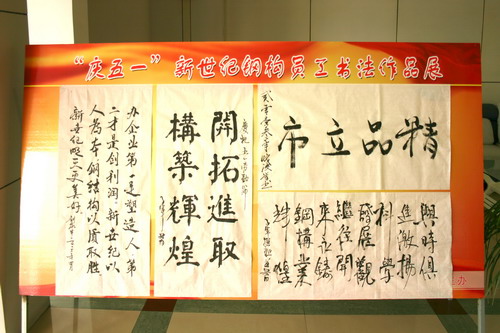 “庆五一”新世纪钢构员工书法作品展
办企业第一是塑造人第
二才是创利润新世纪以
人为本钢结构以质取胜
新世纪更美好
慶祝五一勞動節
開拓進取
構築輝煌
精品立市
與時俱
進激揚
科學
發展觀
繼往開
來鑄
鋼構業
輝煌